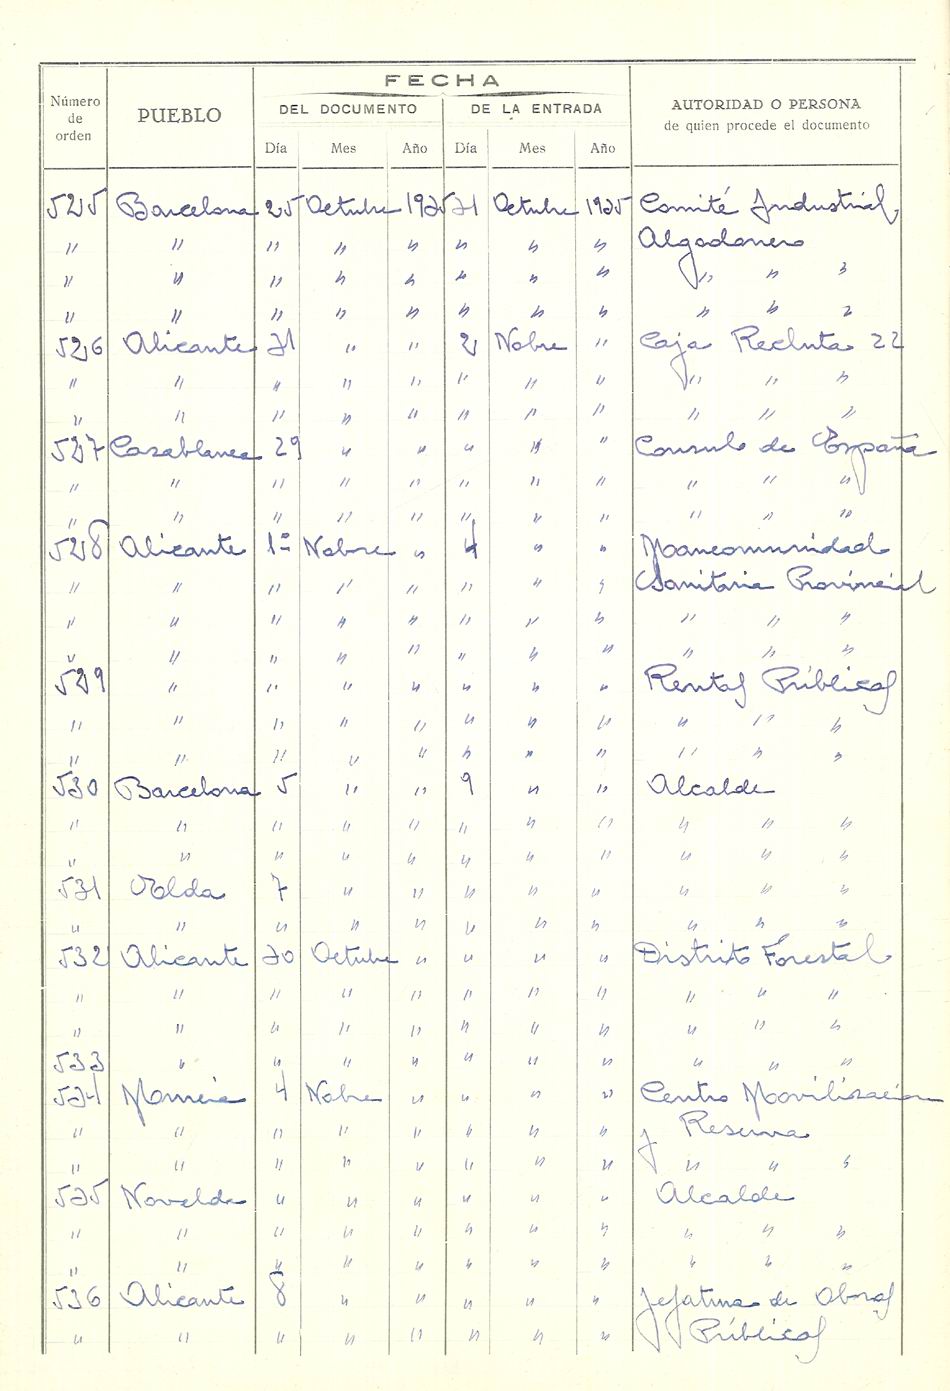 FECHA
Número de orden PUEBLO DEL DOCUMENTO DE LA ENTRADA AUTORIDAD O PERSONA de quien procede el documento
Día Mes Año Día Mes Año
525 Barcelona 25 Octubre 1935 31 Octubre 1935 Comité Industrial
" " " " " " " " Algodonero
" " " " " " " " " " "
" " " " " " " " " " "
526 Alicante 31 " " 2 Nobre " Caja Recluta 22
" " " " " " " " " " "
" " " " " " " " " " "
527 Casablanca 29 " " " " " Consul de España
" " " " " " " " " " "
" " " " " " " " " " "
528 Alicante 1º Nobre " 4 " " Mancomunidad
" " " " " " " " Sanitaria Provincial
" " " " " " " " " " "
" " " " " " " " " " "
529 " " " " " " " Rentas Públicas
" " " " " " " " " " "
" " " " " " " " " " "
530 Barcelona 5 " " 9 " " Alcalde
" " " " " " " " " " "
" " " " " " " " " " "
531 Elda 7 " " " " " " " "
" " " " " " " " " " "
532 Alicante 30 Octubre " " " " Distrito Forestal
" " " " " " " " " " "
" " " " " " " " " " "
533 " " " " " " " " " "
534 Murcia 4 Nobre " " " " Centro Movilización
" " " " " " " " y Reserva
" " " " " " " " " " "
535 Novelda " " " " " " Alcalde
" " " " " " " " " " "
" " " " " " " " " " "
536 Alicante 8 " " " " " Jefatura de Obras
" " " " " " " " Públicas